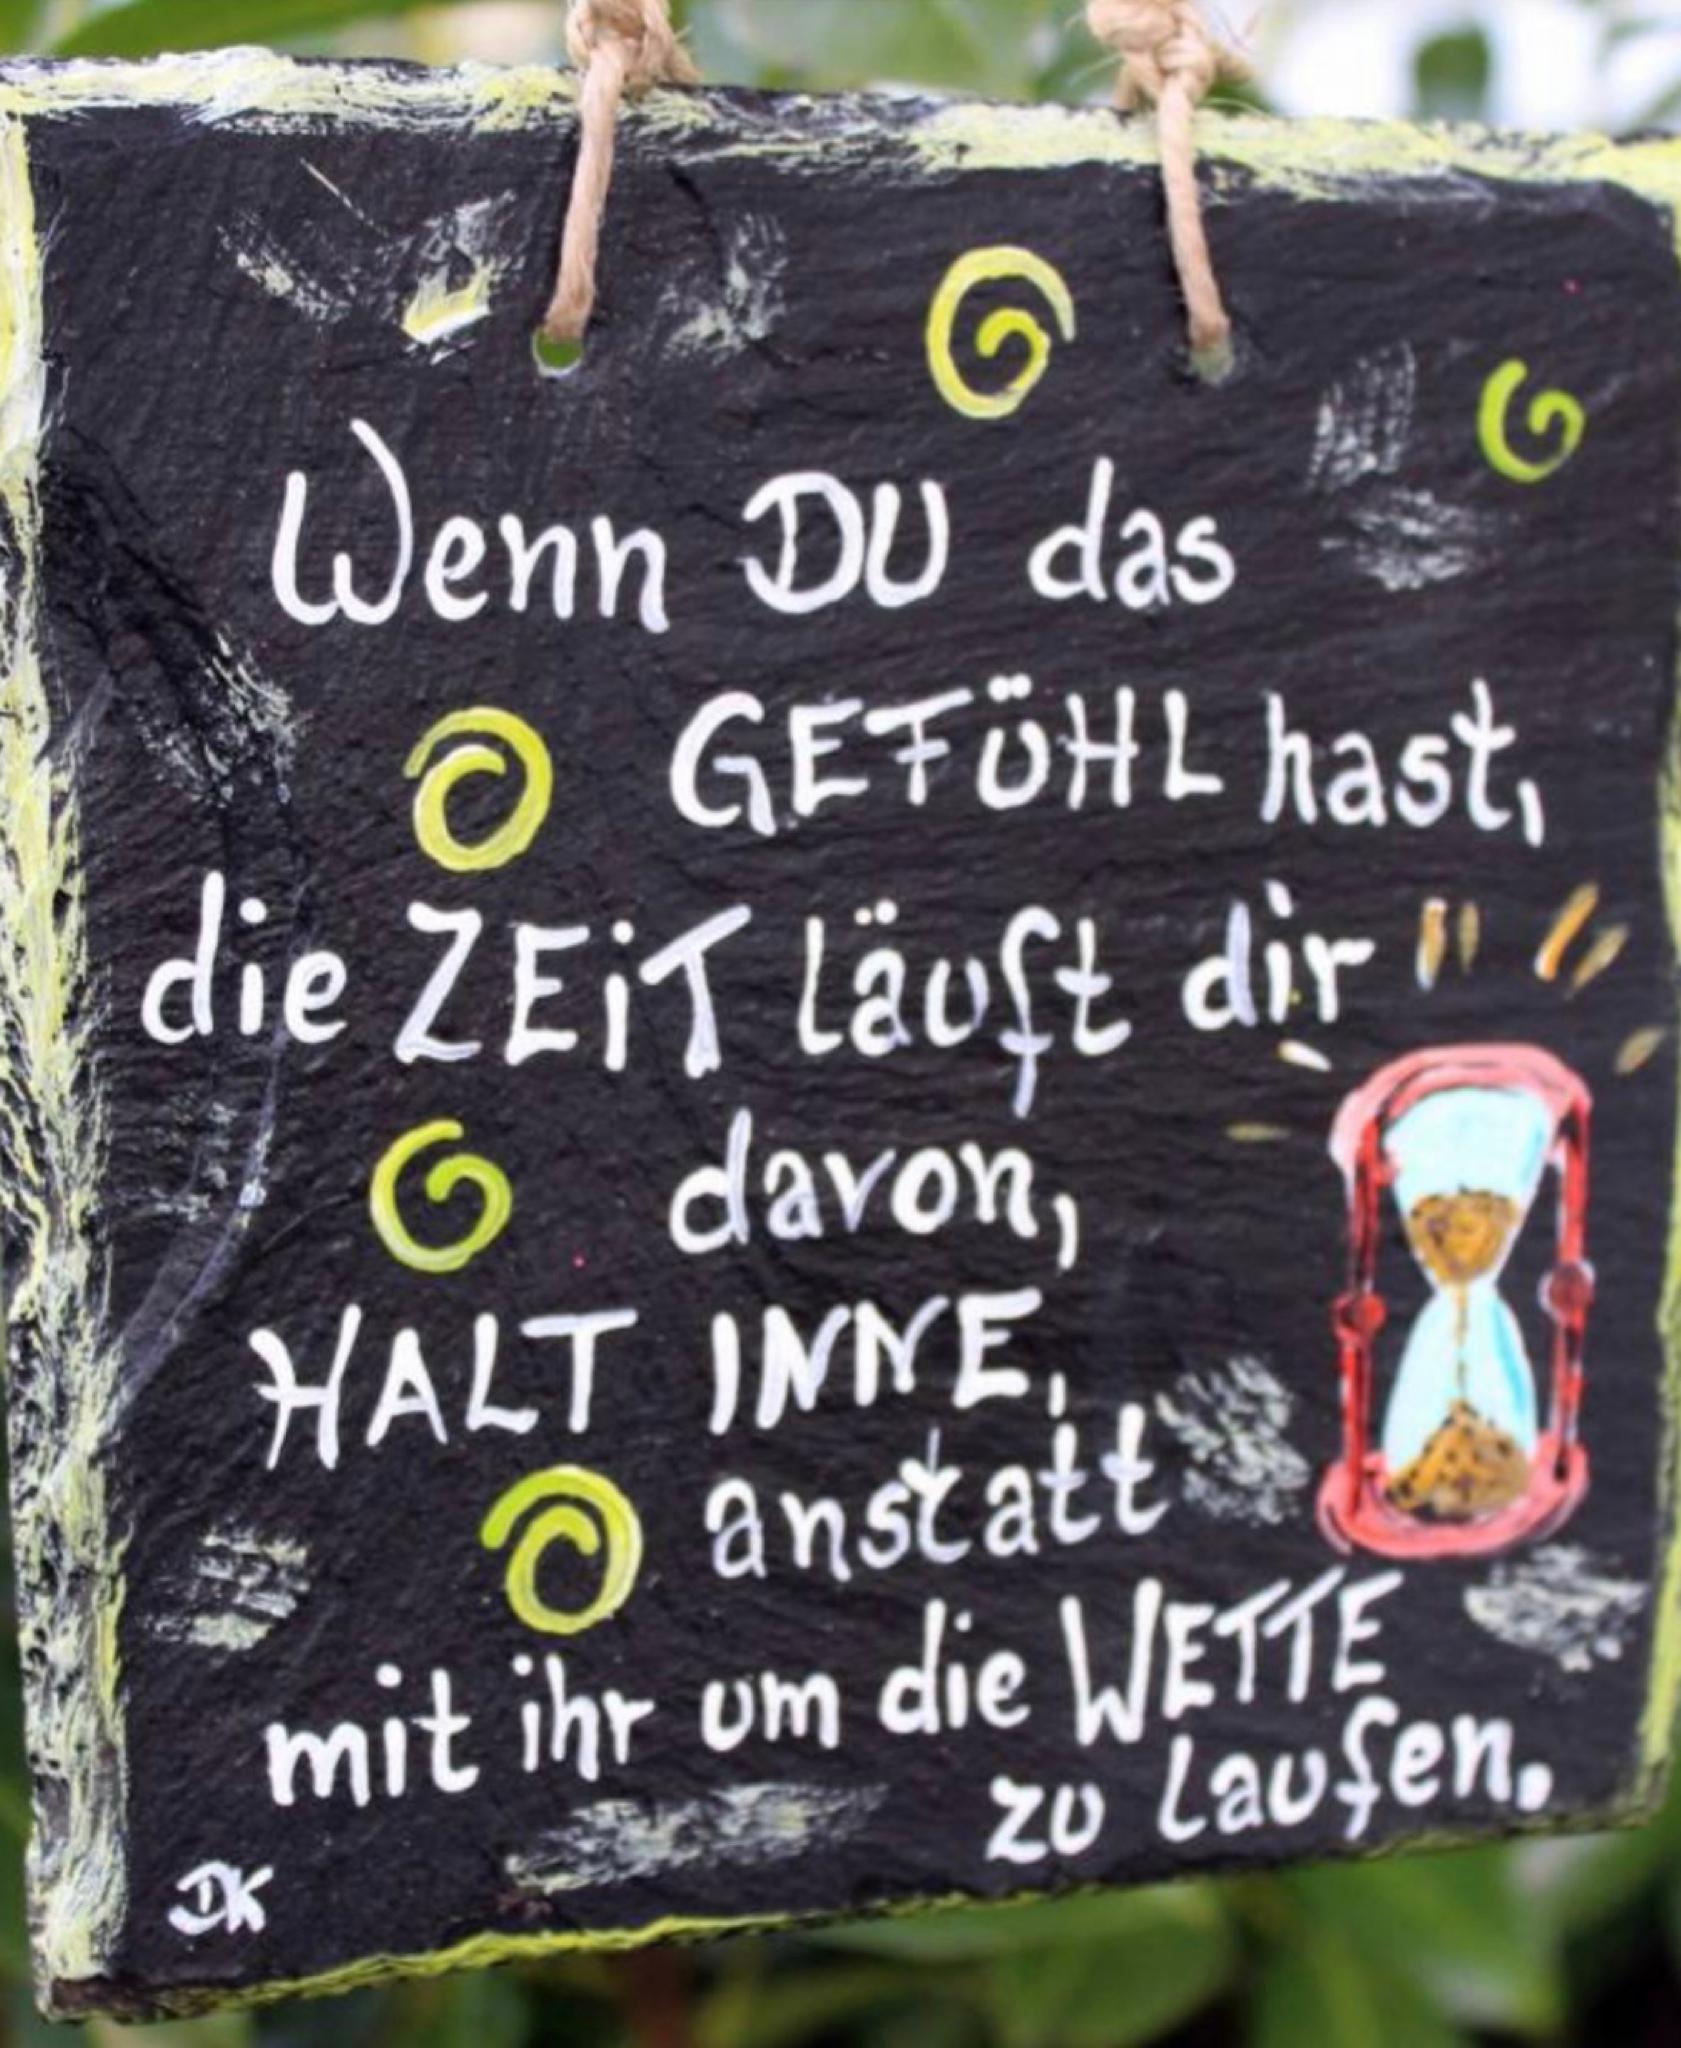 Wenn DU das
GEFÜHL hast,
die ZEiT läuft dir
davon,
HALT INNE,
anstatt
mit ihr um die WETTE
zu laufen.
DK